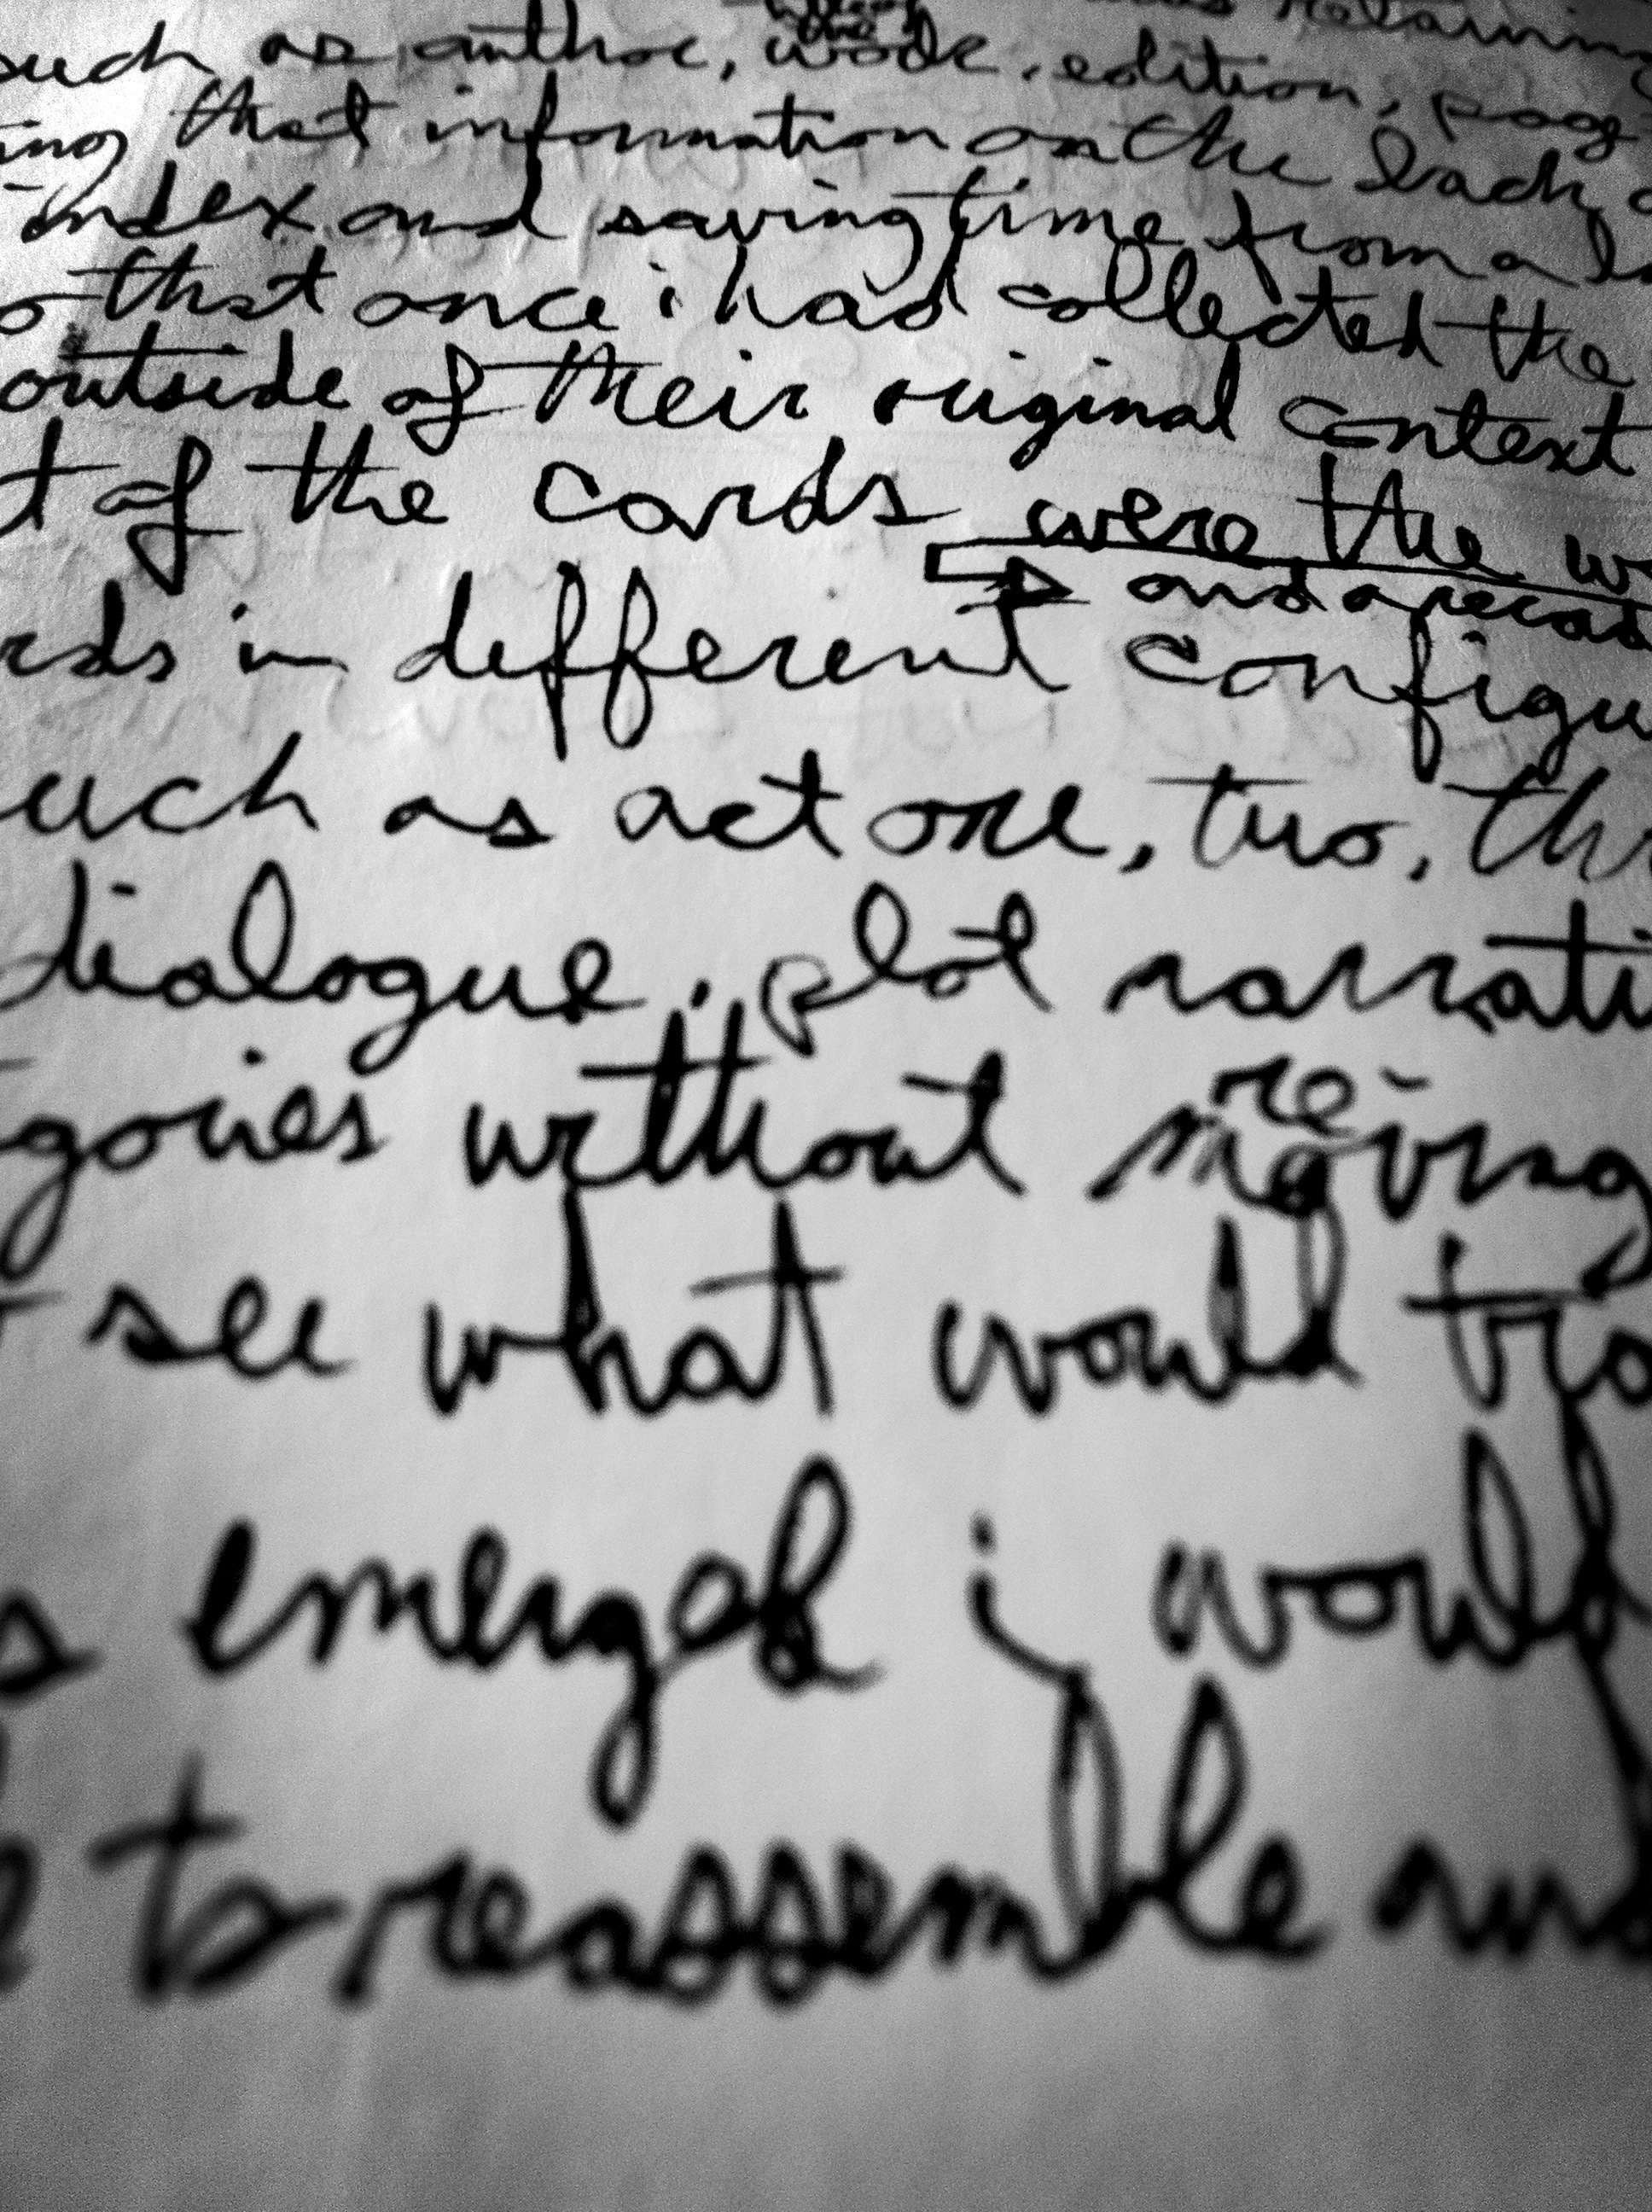 retaining
such as author, work, edition, page
ing that information on the back
index and saving time from a
that once i had collected the
outside of their original context
t of the cards were the
and
rds in different configu
uch as act one, two, thr
dialogue, plot narrati
re-
gories without moving
see what would
s emerged i would
to reassemble